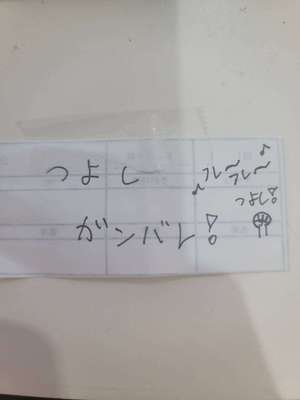 つよし
ガンバレ!
♪フレ〜♪
フレ〜
つよし!